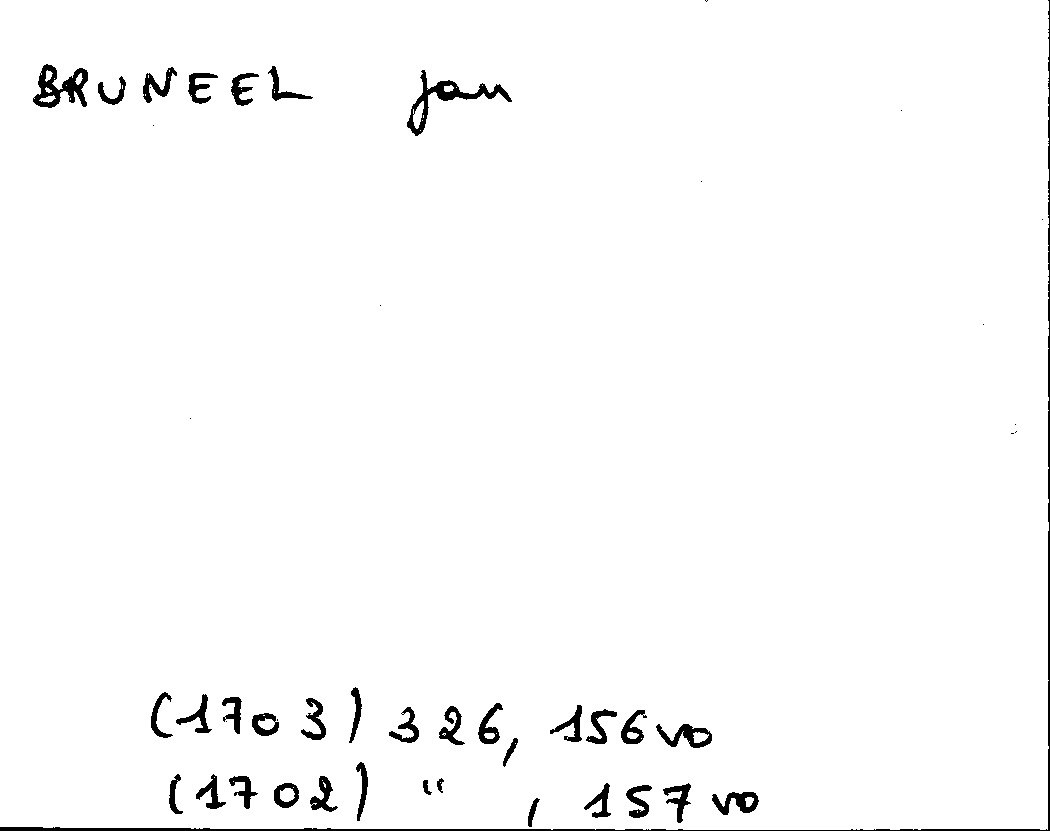 BRUNEEL Jan
(1703) 326, 156 vo
(1702) " , 157 vo